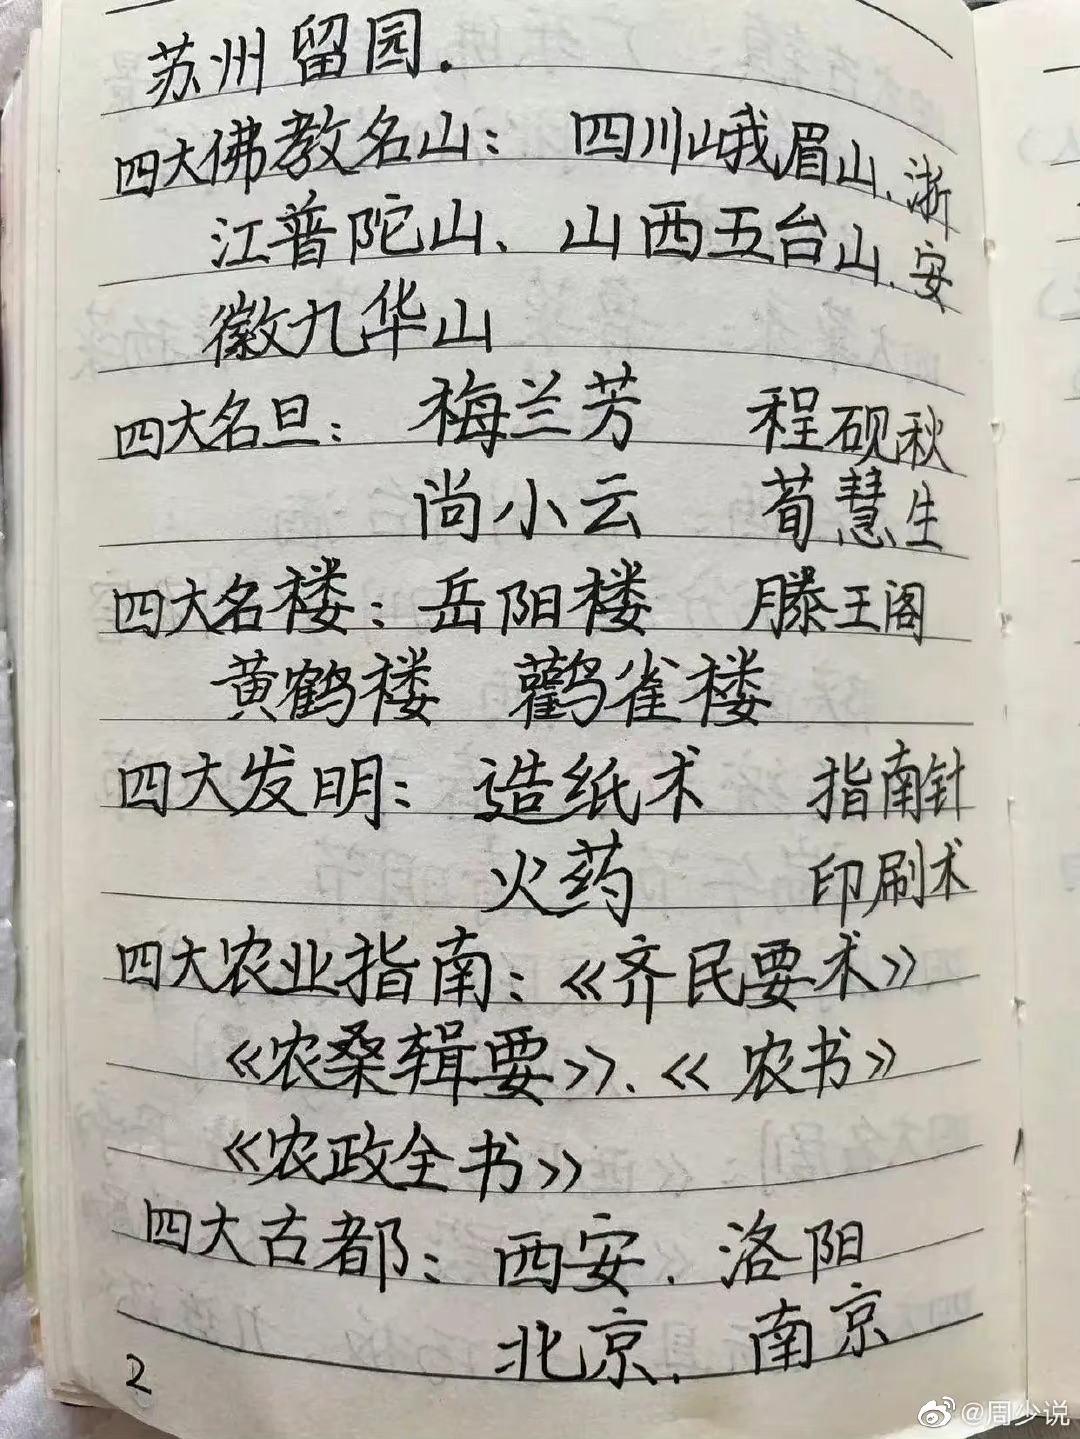 苏州留园.
四大佛教名山：四川峨眉山、浙
江普陀山、山西五台山、安
徽九华山
四大名旦：梅兰芳 程砚秋
尚小云 荀慧生
四大名楼：岳阳楼 滕王阁
黄鹤楼 鹳雀楼
四大发明：造纸术 指南针
火药 印刷术
四大农业指南：《齐民要术》
《农桑辑要》、《农书》
《农政全书》
四大古都：西安、洛阳
北京、南京
2
@周少说